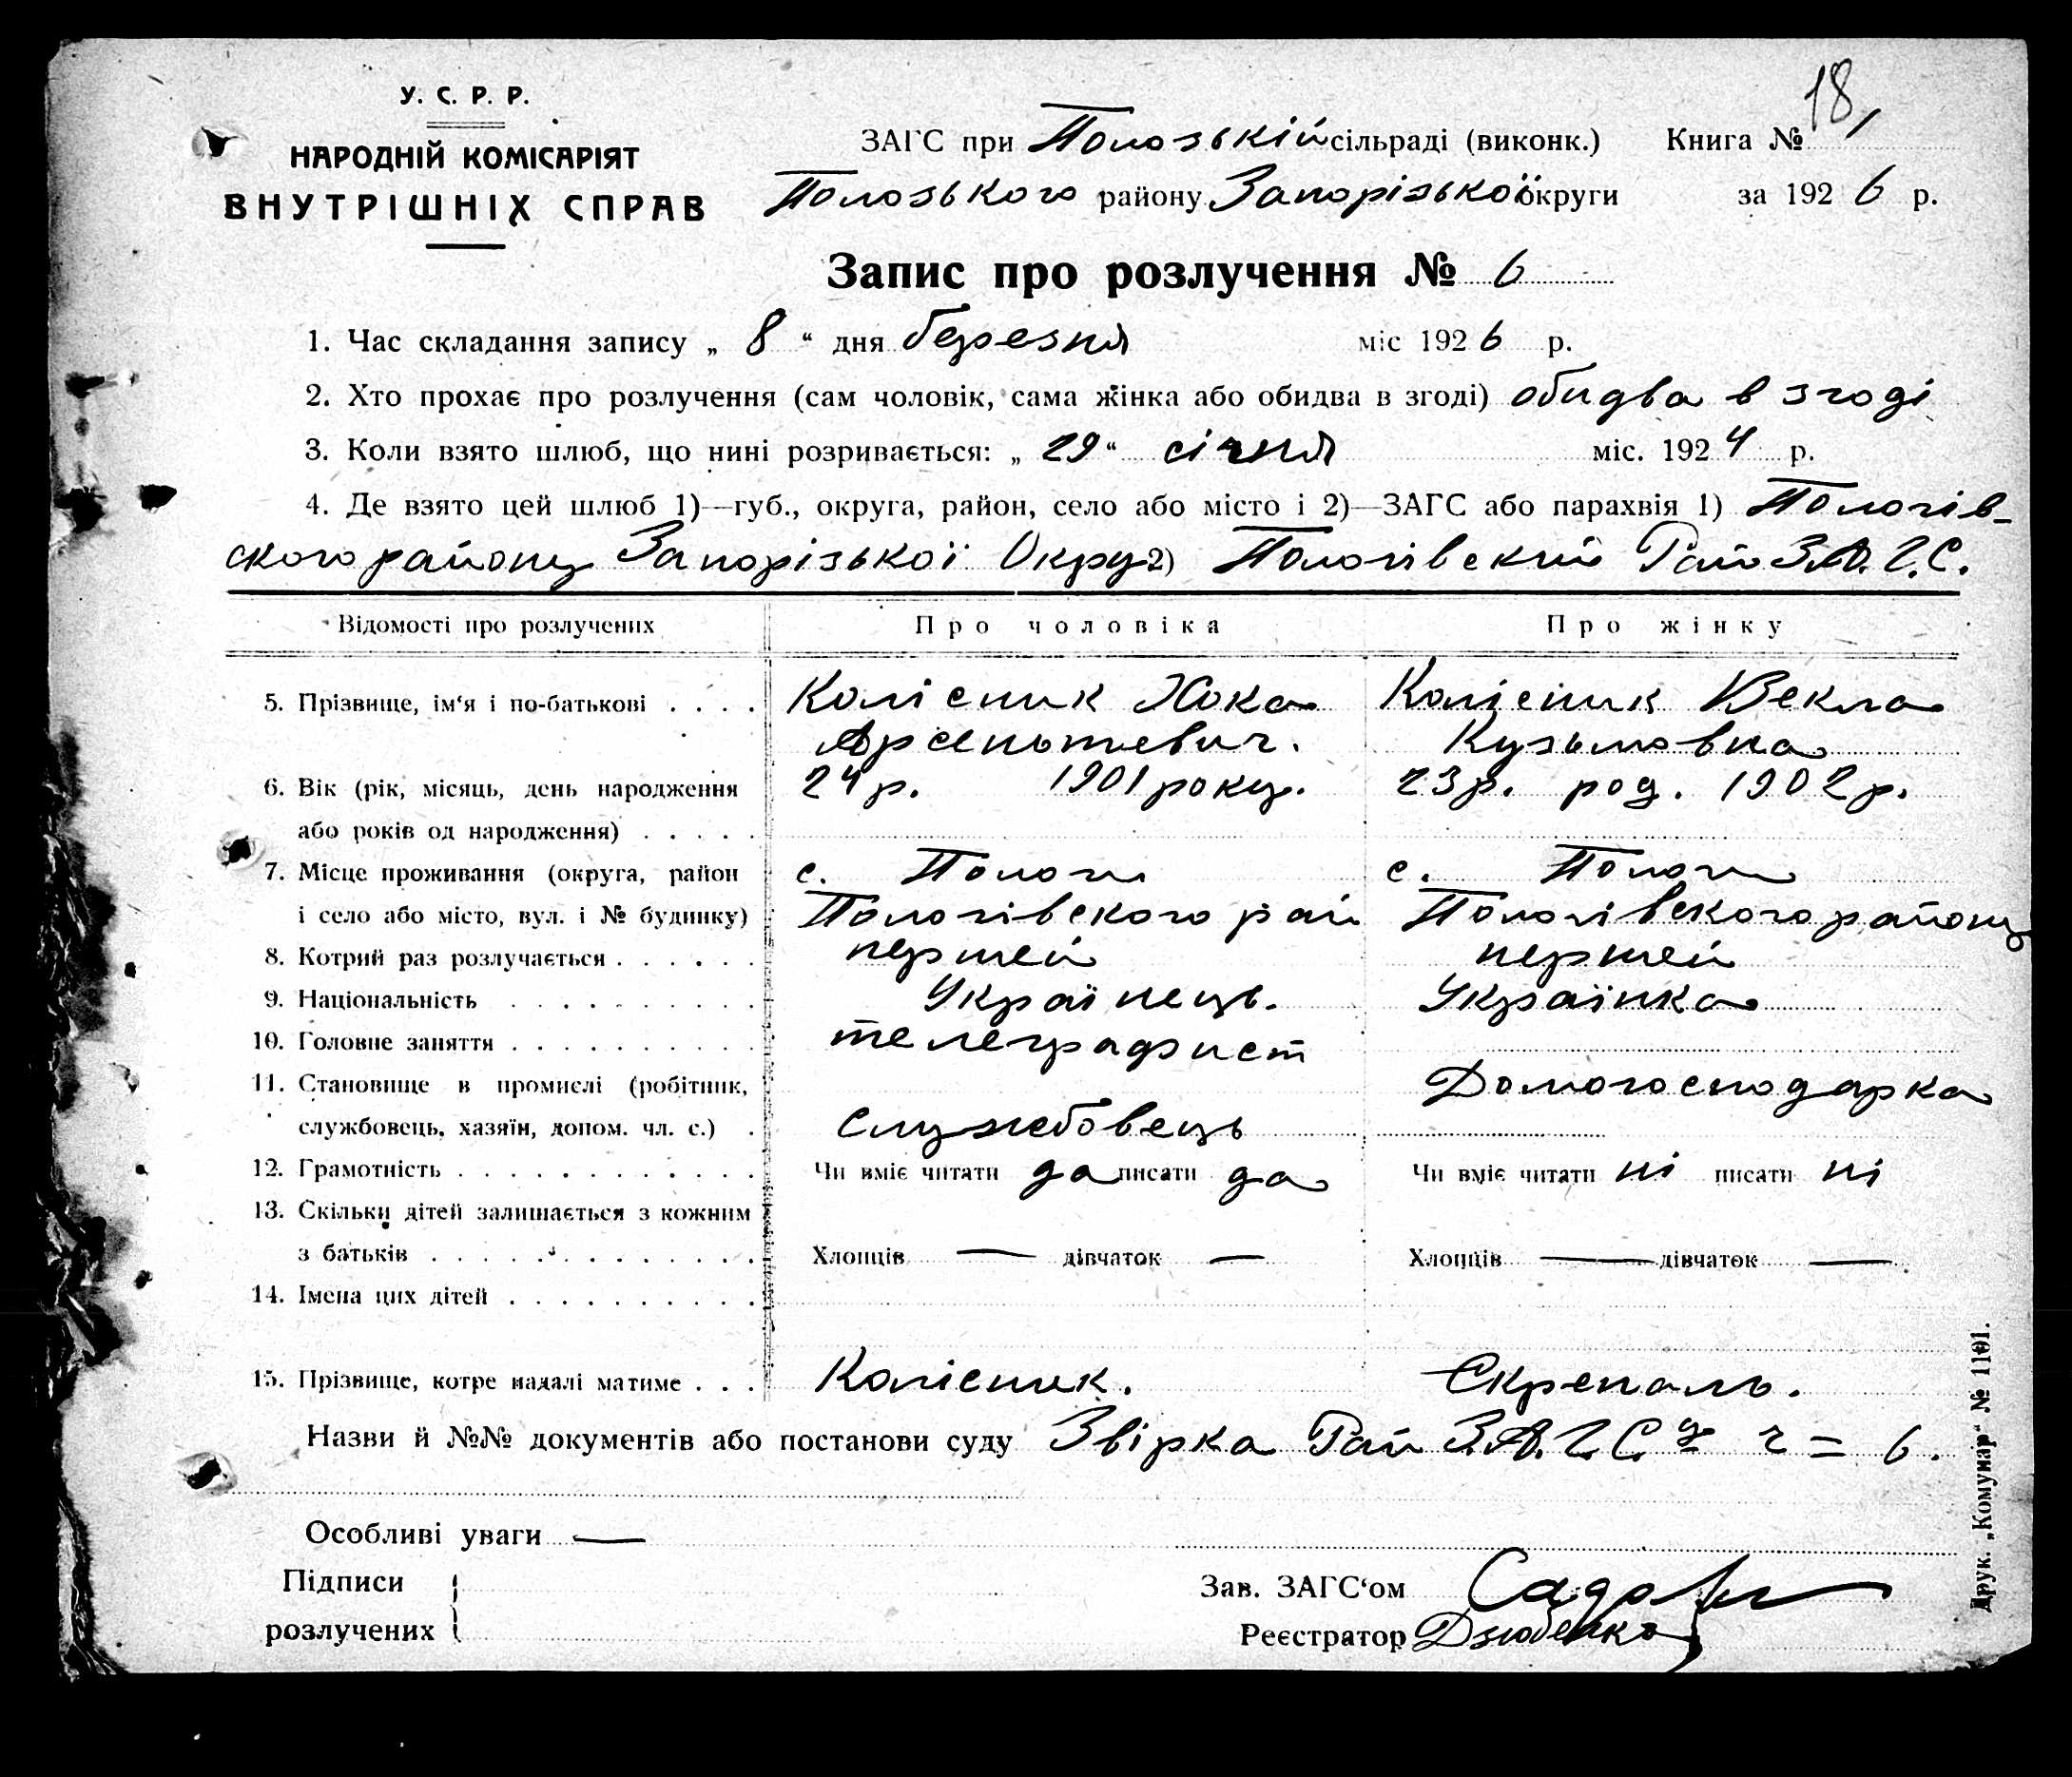 18,
У. С. Р. Р.
НАРОДНІЙ КОМІСАРІЯТ
ВНУТРІШНІХ СПРАВ
ЗАГС при Полозькій сільраді (виконк.) Книга №
Полозького району Запорізької округи за 1926 р.
Запис про розлучення № 6
1. Час складання запису „ 8 “ дня березня міс 1926 р.
2. Хто прохає про розлучення (сам чоловік, сама жінка або обидва в згоді) обидва в згоді
3. Коли взято шлюб, що нині розривається: „ 29 “ січня міс. 1924 р.
4. Де взято цей шлюб 1)—губ., округа, район, село або місто і 2)—ЗАГС або парахвія 1) Пологів-
ского району Запорізької Окру 2) Пологівский Рай З.А.Г.С.
Відомості про розлучених Про чоловіка Про жінку
5. Прізвище, ім‘я і по-батькові . . . . Колісник Хока Колісник Векла
Арсентьевич. Кузьмовна
6. Вік (рік, місяць, день народження 24 р. 1901 року. 23 р. род. 1902 р.
або років од народження) . . . . .
7. Місце проживання (округа, район с. Пологи с. Пологи
і село або місто, вул. і № будинку) Пологівского рай Пологівского району
8. Котрий раз розлучається . . . . . . першей першей
9. Національність . . . . . . . . . . Українець. Українка
10. Головне заняття . . . . . . . . . . телеграфист
11. Становище в промислі (робітник, Домогосподарка
службовець, хазяїн, допом. чл. с.) . Службовець
12. Грамотність . . . . . . . . . . . . Чи вміє читати да писати да Чи вміє читати ні писати ні
13. Скільки дітей залишається з кожним
з батьків . . . . . . . . . . . . . Хлопців — дівчаток — Хлопців — дівчаток —
14. Імена цих дітей . . . . . . . . . .
15. Прізвище, котре надалі матиме . . . Колісник. Скрепаль.
Назви й №№ документів або постанови суду Звірка Рай З.А.Г.С. ч = 6.
Особливі уваги —
Підписи
розлучених
Зав. ЗАГС‘ом
Реєстратор Дзюбенко
Друк. „Комунар“ № 1101.